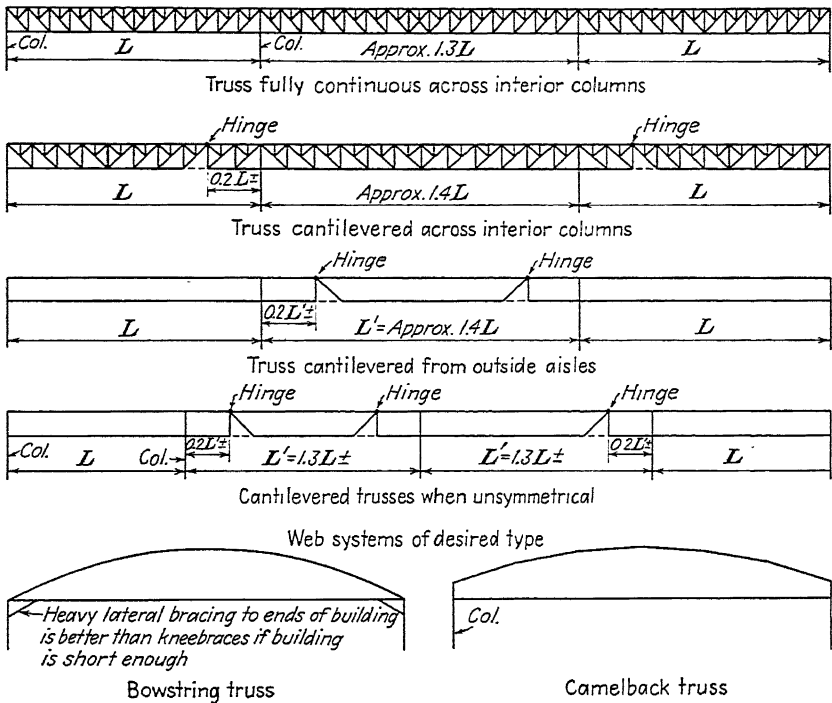 Col. L Col. Approx. 1.3L L
Truss fully continuous across interior columns
Hinge Hinge
0.2L±
L Approx. 1.4L L
Truss cantilevered across interior columns
Hinge Hinge
0.2L'±
L L'=Approx. 1.4L L
Truss cantilevered from outside aisles
Hinge Hinge Hinge
Col. L Col. 0.2L'± L'=1.3L± L'=1.3L± 0.2L'± L
Cantilevered trusses when unsymmetrical
Web systems of desired type
Heavy lateral bracing to ends of building
is better than kneebraces if building
is short enough
Col.
Bowstring truss Camelback truss